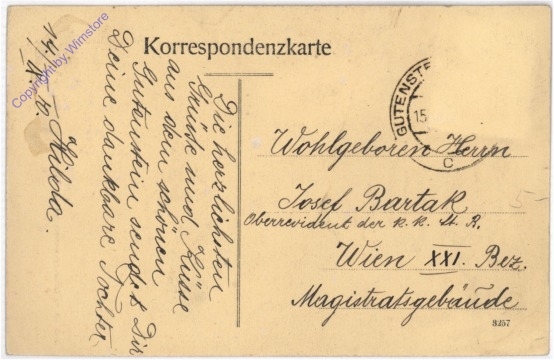 Korrespondenzkarte
Die herzlichsten
Grüße und Küsse
aus dem schönen
Gutenstein sendet Dir
Deine dankbare Tochter
Hilda.
14./
GUTENSTE
15.
C
Wohlgeboren Herrn
Josef Bartak
Oberrevident der k. k. St. B.
Wien XXI. Bez.
Magistratsgebäude
5-
8257
Copyright by: Wimstore